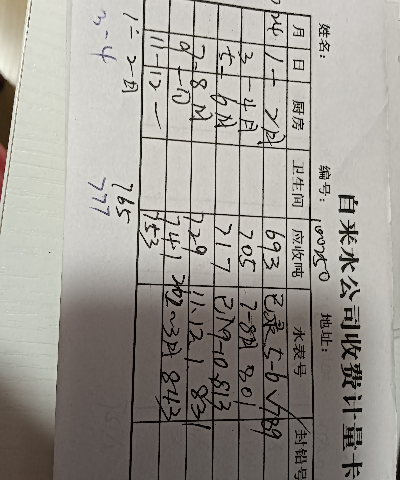 自来水公司收费计量卡
姓名： 编号：100250 地址：
月 日 厨房 卫生间 应收吨 水表号 封铅号
24 1—2月 693 已录 5-6√789
3—4月 705 7-8月 801
5—6月 717 9-10 813
7—8月 729 11.12 831
9—10 741 3月 843
11—12 753
1—2月 765
3-4 777